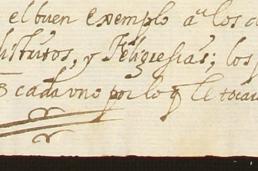 el buen exemplo a los
distritos, y Feligresias; los
cada uno por lo q le toca